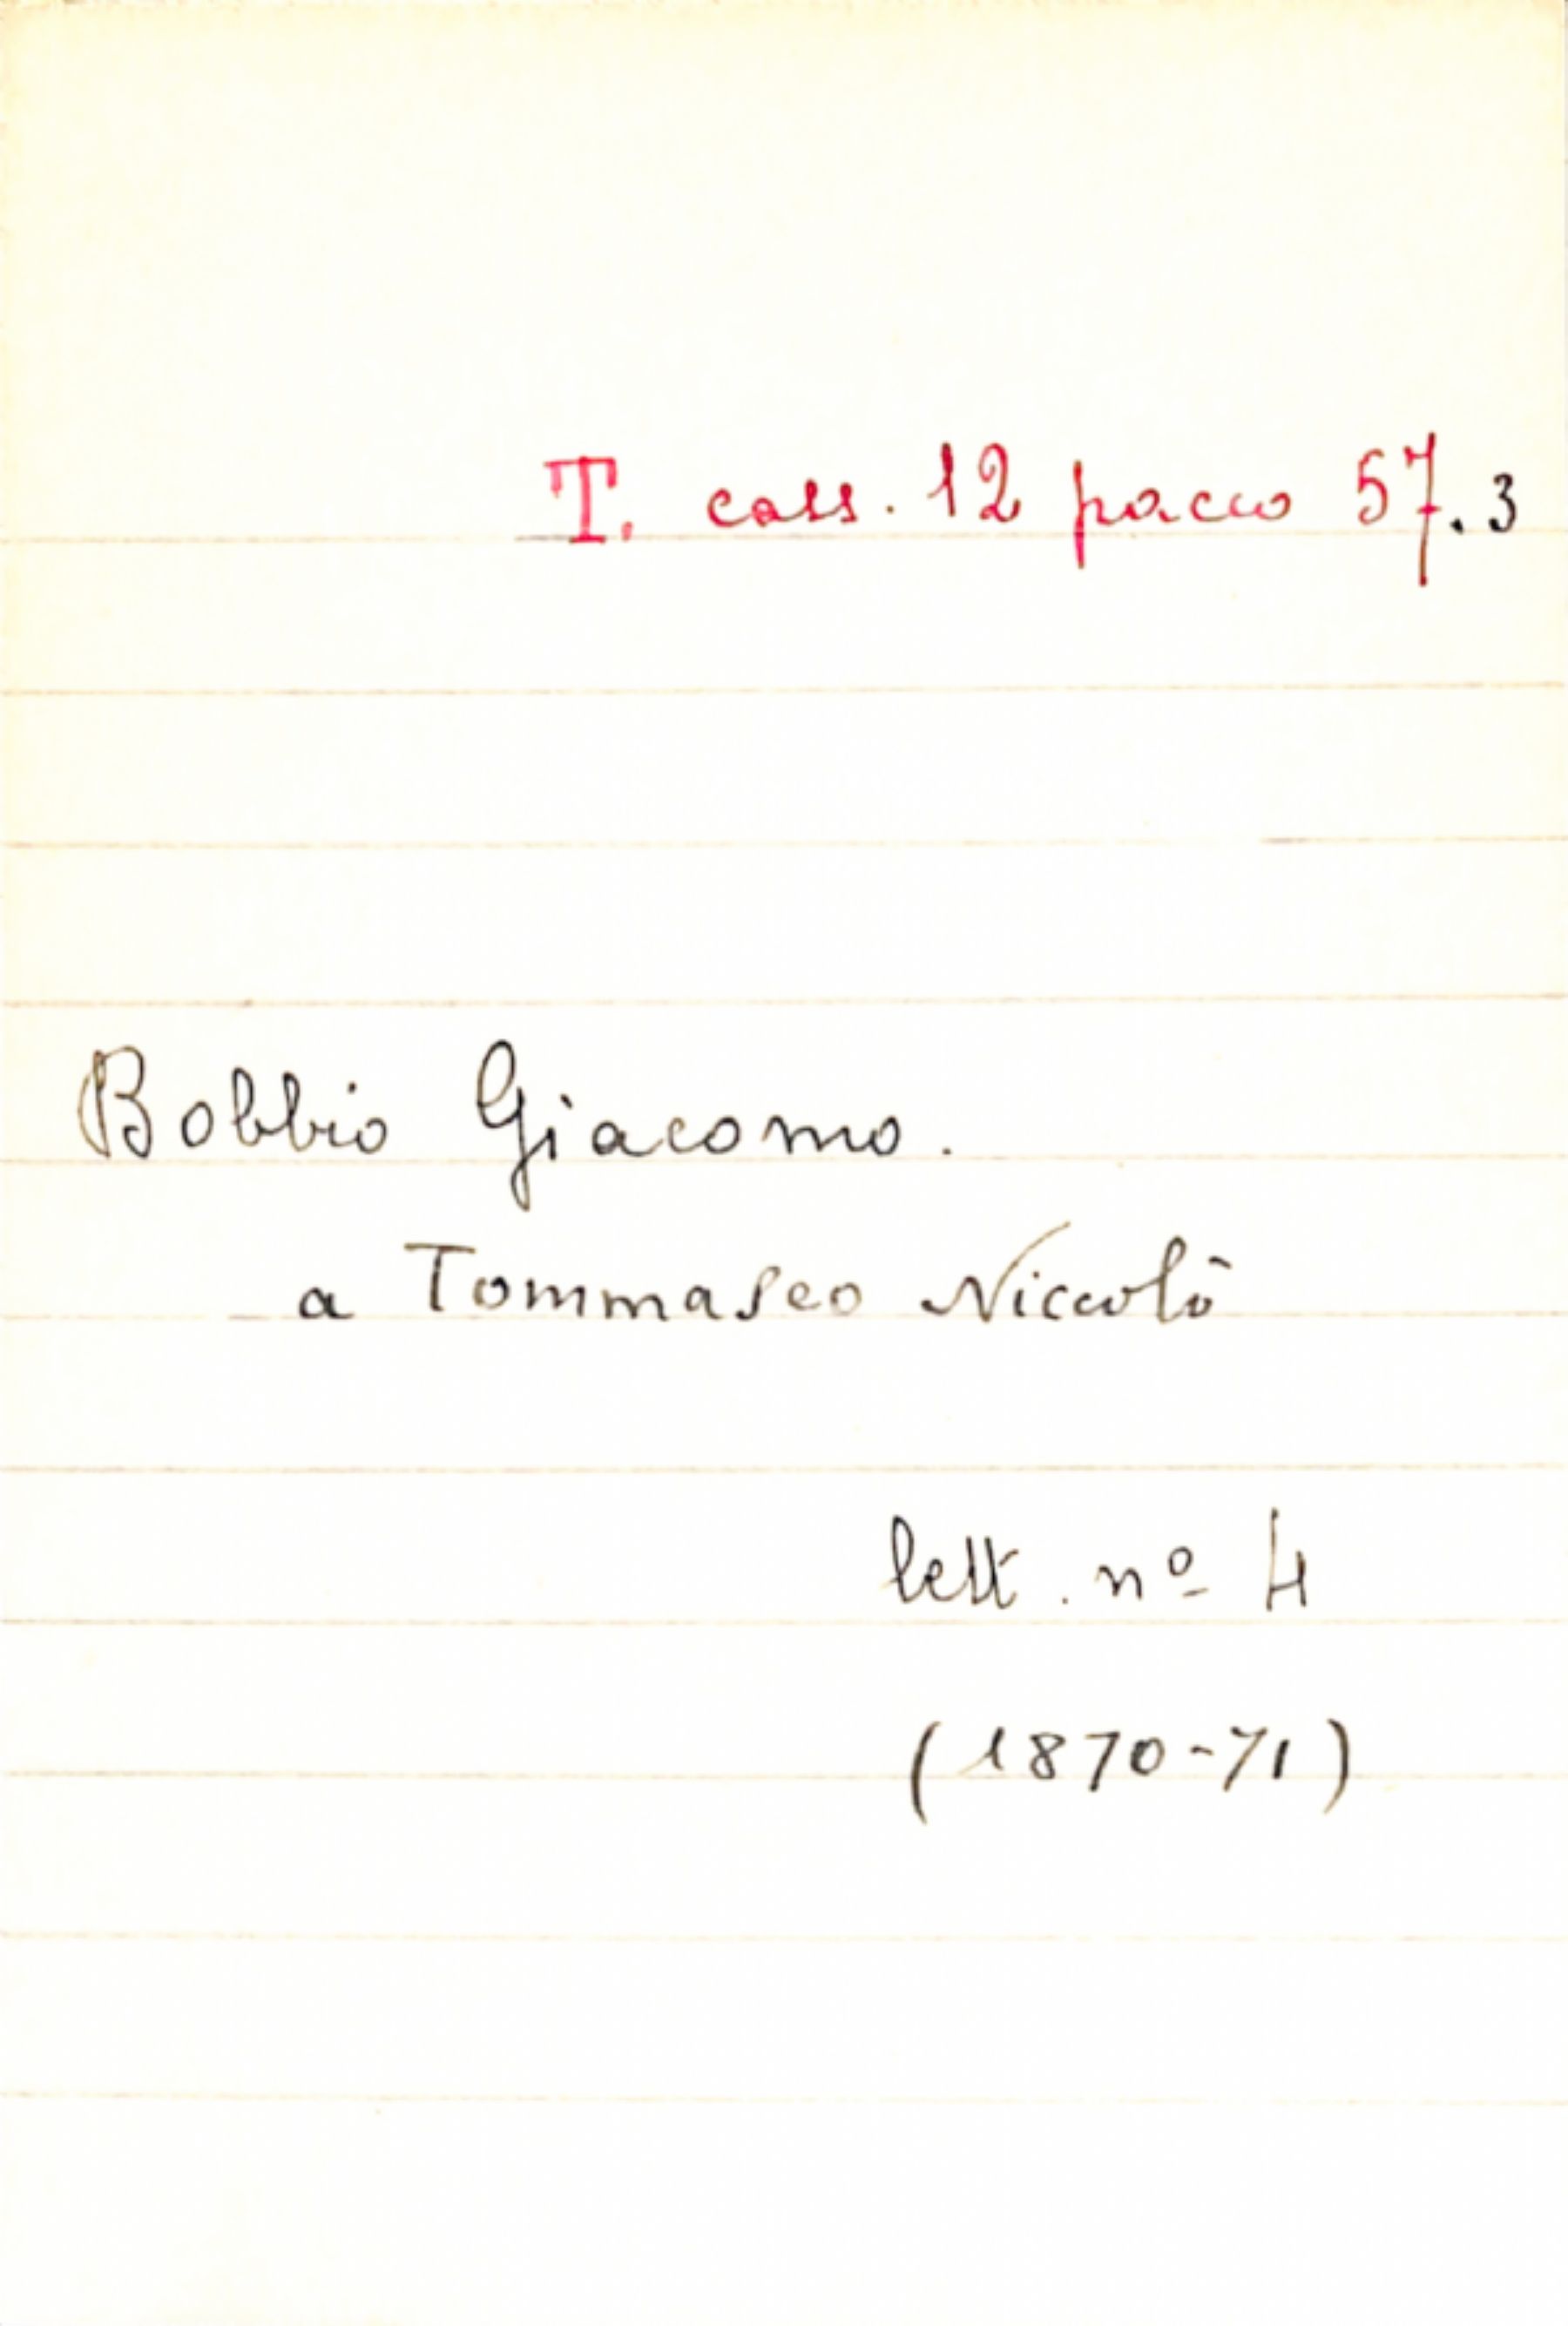 T. cass. 12 pacco 57.3
Bobbio Giacomo.
a Tommaseo Niccolò
lett. nº 4
(1870-71)